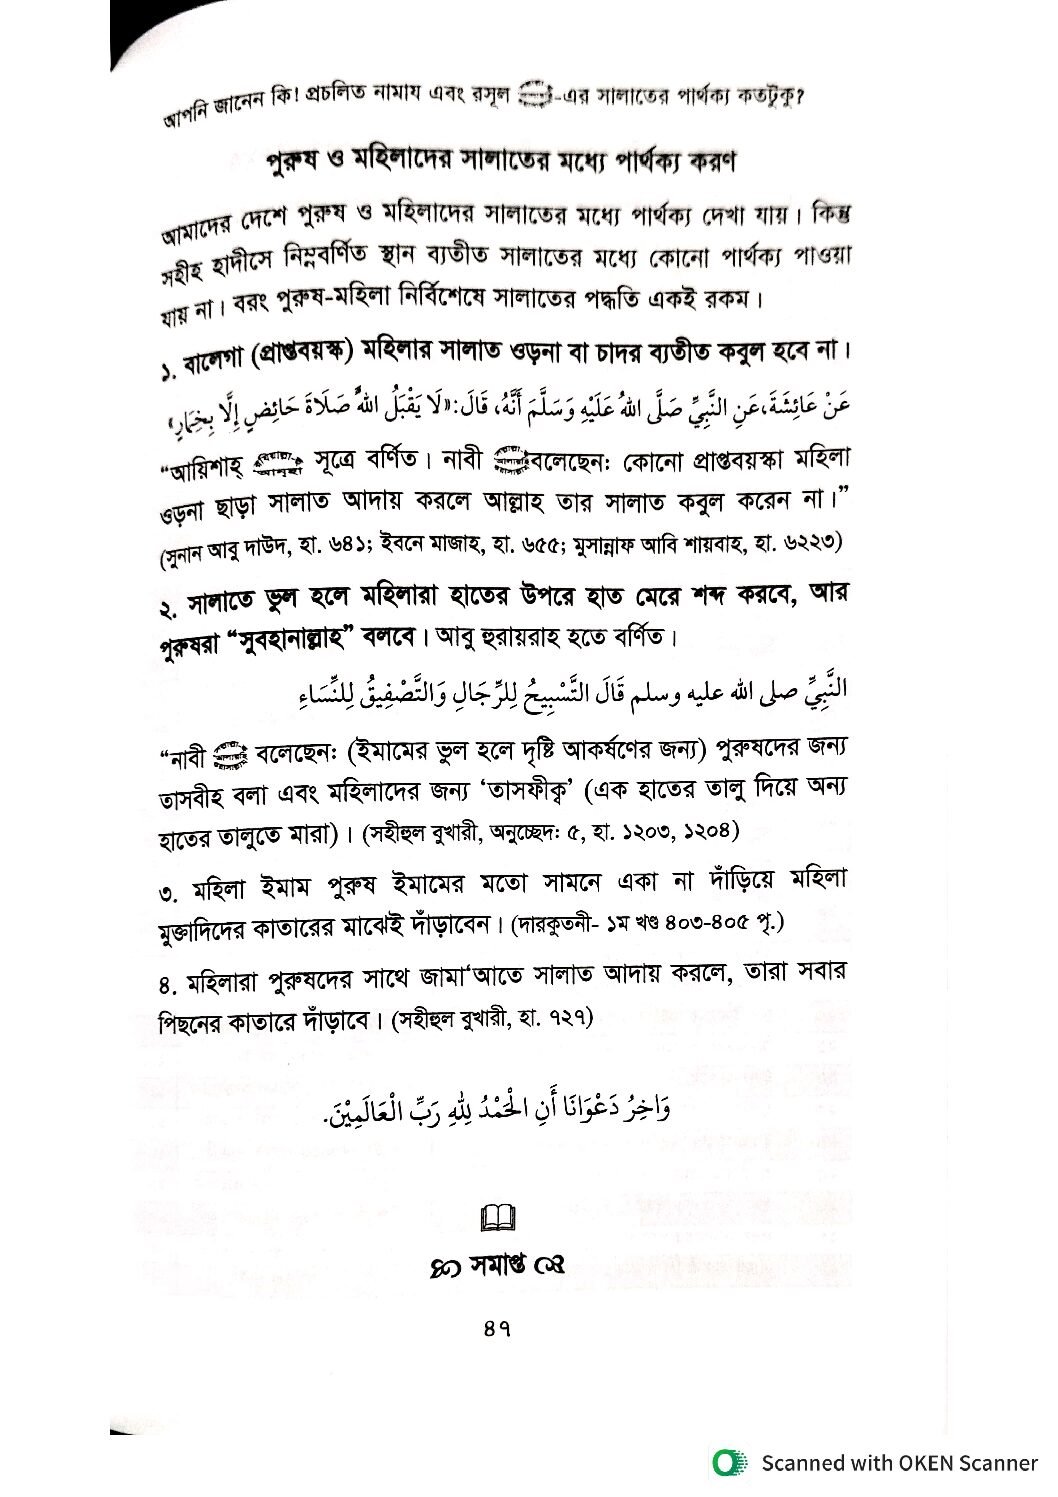 আপনি জানেন কি! প্রচলিত নামায এবং রসূল ﷺ-এর সালাতের পার্থক্য কতটুকু?
পুরুষ ও মহিলাদের সালাতের মধ্যে পার্থক্য করণ
আমাদের দেশে পুরুষ ও মহিলাদের সালাতের মধ্যে পার্থক্য দেখা যায়। কিন্তু
সহীহ হাদীসে নিম্নবর্ণিত স্থান ব্যতীত সালাতের মধ্যে কোনো পার্থক্য পাওয়া
যায় না। বরং পুরুষ-মহিলা নির্বিশেষে সালাতের পদ্ধতি একই রকম।
১. বালেগা (প্রাপ্তবয়স্ক) মহিলার সালাত ওড়না বা চাদর ব্যতীত কবুল হবে না।
عَنْ عَائِشَةَ،عَنِ النَّبِيِّ صَلَّى اللهُ عَلَيْهِ وَسَلَّمَ أَنَّهُ، قَالَ:«لَا يَقْبَلُ اللهُ صَلَاةَ حَائِضٍ إِلَّا بِخِمَارٍ»
“আয়িশাহ্ সূত্রে বর্ণিত। নাবী ﷺ বলেছেন: কোনো প্রাপ্তবয়স্কা মহিলা
ওড়না ছাড়া সালাত আদায় করলে আল্লাহ তার সালাত কবুল করেন না।”
(সুনান আবু দাউদ, হা. ৬৪১; ইবনে মাজাহ, হা. ৬৫৫; মুসান্নাফ আবি শায়বাহ, হা. ৬২২৩)
২. সালাতে ভুল হলে মহিলারা হাতের উপরে হাত মেরে শব্দ করবে, আর
পুরুষরা “সুবহানাল্লাহ” বলবে। আবু হুরায়রাহ হতে বর্ণিত।
النَّبِيِّ صلى الله عليه وسلم قَالَ التَّسْبِيحُ لِلرِّجَالِ وَالتَّصْفِيقُ لِلنِّسَاءِ
“নাবী ﷺ বলেছেন: (ইমামের ভুল হলে দৃষ্টি আকর্ষণের জন্য) পুরুষদের জন্য
তাসবীহ বলা এবং মহিলাদের জন্য ‘তাসফীক্ব’ (এক হাতের তালু দিয়ে অন্য
হাতের তালুতে মারা)। (সহীহুল বুখারী, অনুচ্ছেদ: ৫, হা. ১২০৩, ১২০৪)
৩. মহিলা ইমাম পুরুষ ইমামের মতো সামনে একা না দাঁড়িয়ে মহিলা
মুক্তাদিদের কাতারের মাঝেই দাঁড়াবেন। (দারকুতনী- ১ম খণ্ড ৪০৩-৪০৫ পৃ.)
৪. মহিলারা পুরুষদের সাথে জামা‘আতে সালাত আদায় করলে, তারা সবার
পিছনের কাতারে দাঁড়াবে। (সহীহুল বুখারী, হা. ৭২৭)
وَاخِرُ دَعْوَانَا أَنِ الْحَمْدُ لِلهِ رَبِّ الْعَالَمِيْنَ.
সমাপ্ত
৪৭
Scanned with OKEN Scanner